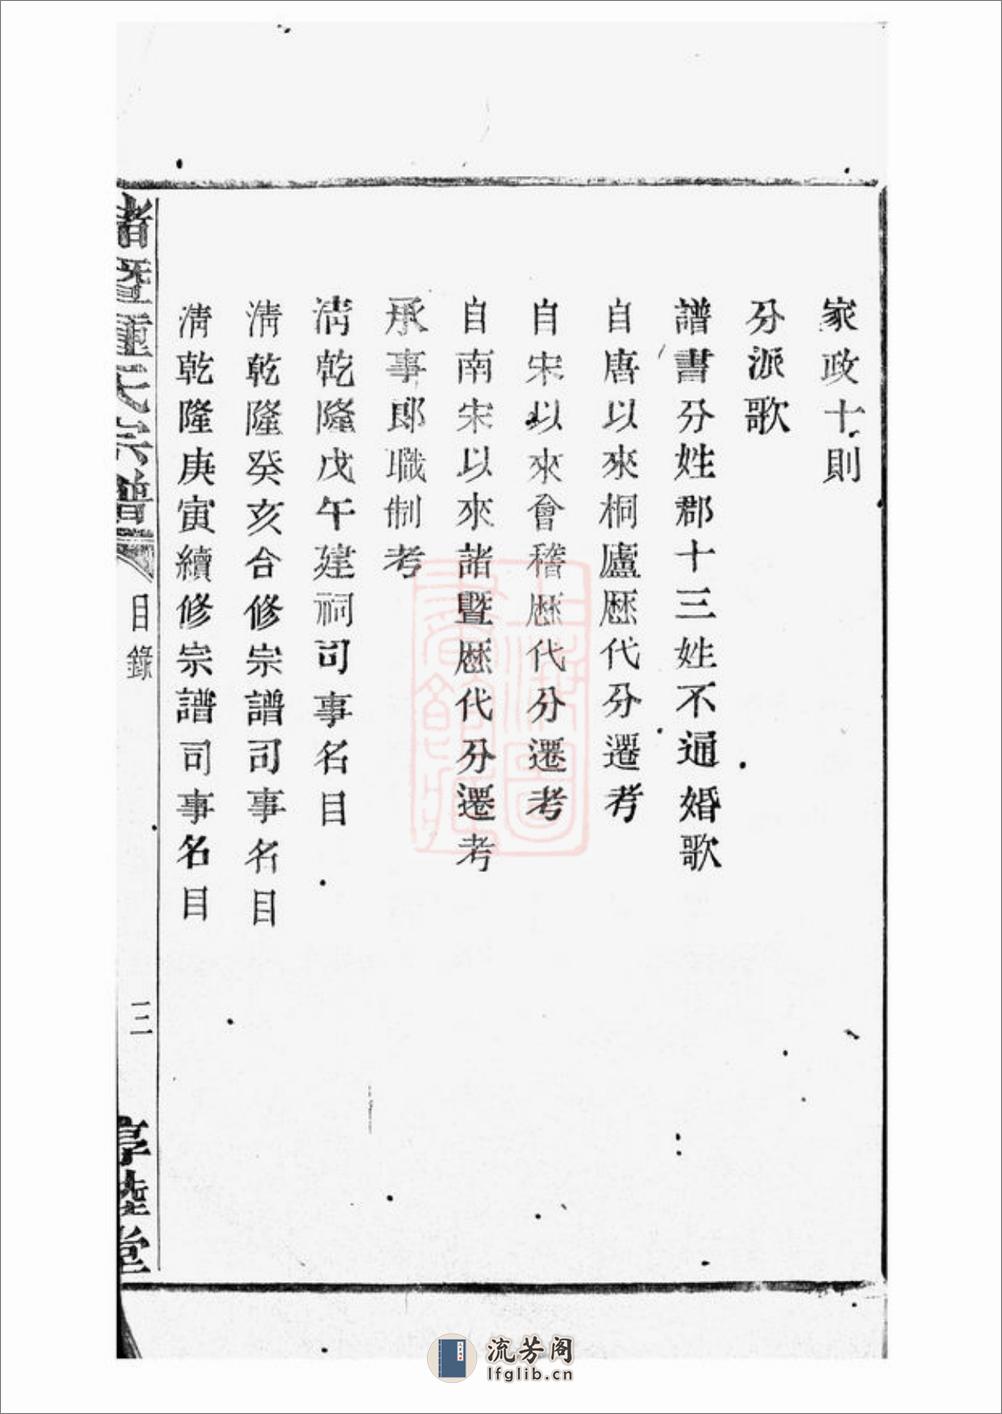 家政十則
分派歌
譜書分姓郡十三姓不通婚歌
自唐以來桐廬歷代分遷考
自宋以來會稽歷代分遷考
自南宋以來諸暨歷代分遷考
承事郎職制考
淸乾隆戊午建祠司事名目
淸乾隆癸亥合修宗譜司事名目
淸乾隆庚寅續修宗譜司事名目
諸暨 氏宗譜
目錄
三
惇睦堂
上海圖書館藏
流芳阁
lfglib.cn